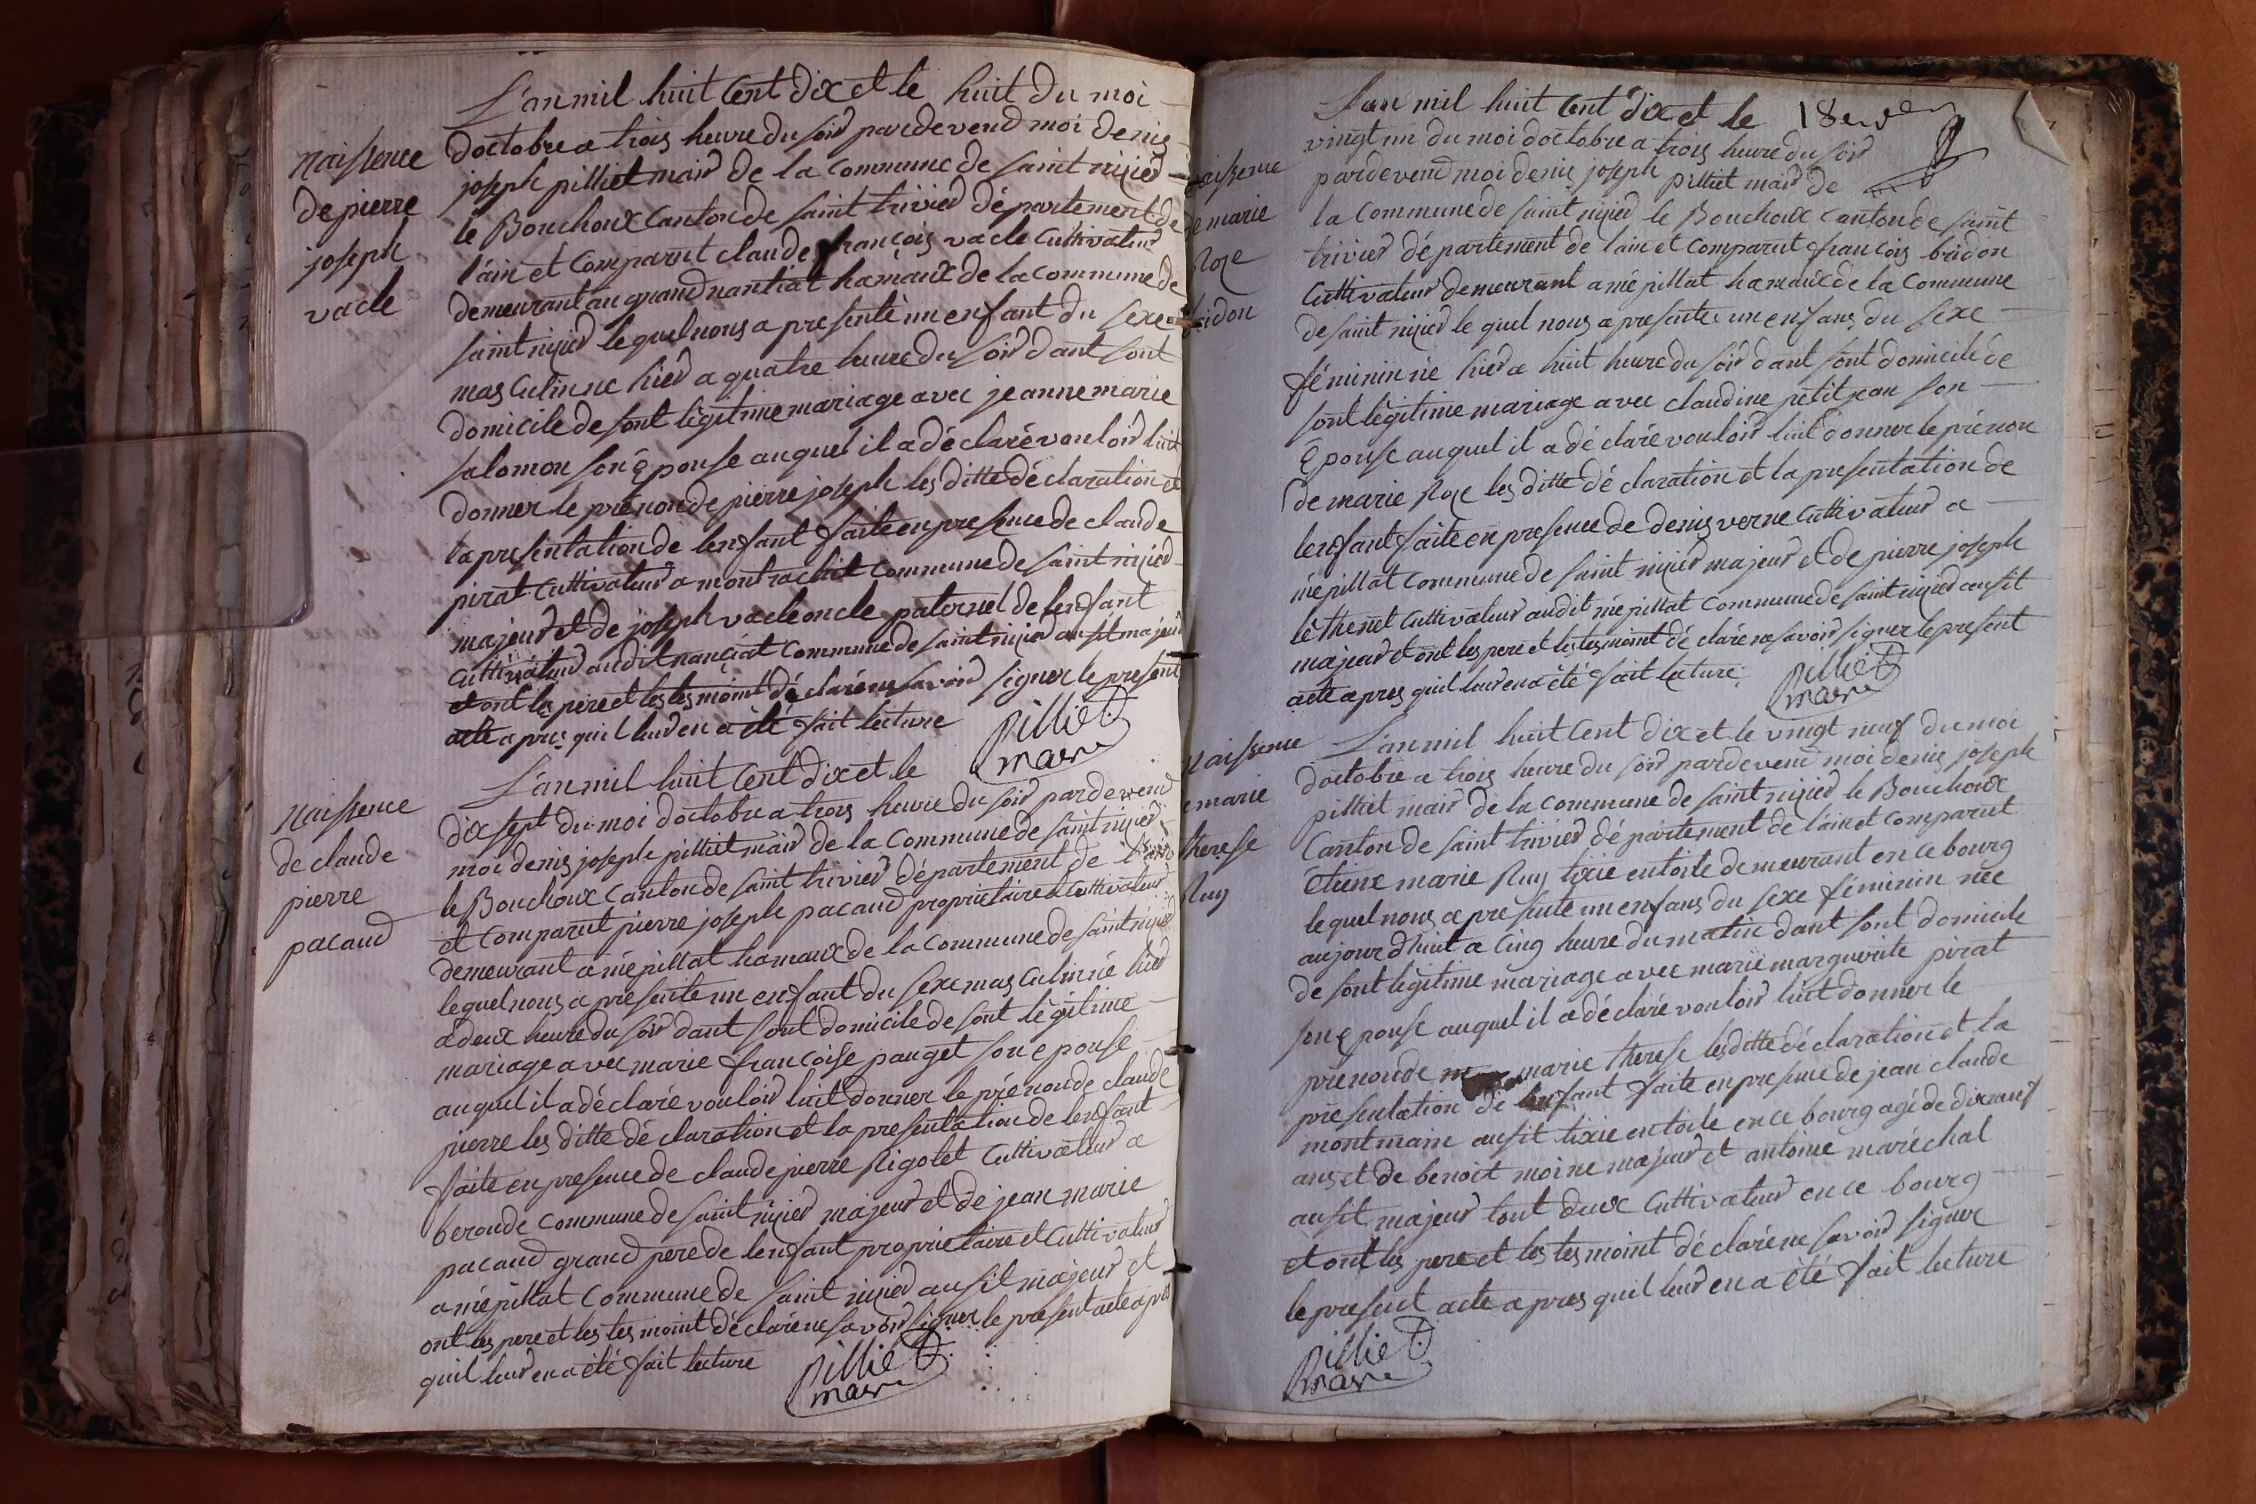 naissence
de pierre
joseph
vacle
L'an mil huit Cent dix et le huit du moi
doctobre a trois heure du soir pardevend moi denis
joseph pilliet mair de la Commune de saint nizier
le Bouchoux Canton de saint trivier département de
lain et Comparut claude françois vacle Cultivateur
demeurant au grand nantiat hamaux de la Commune de
saint nizier lequel nous a presenté un enfant du sexe
masculin ne hier a quatre heure du soir dant sont
domicile de sont légitime mariage avec jeanne marie
salomon son épouse auquel il a déclaré vouloir luit
donner le prénon de pierre joseph les ditte déclaration et
la presentation de lenfant faite en presence de claude
pirat Cultivateur a montrachit Commune de saint nizier
majeur et de joseph vacle oncle paternel de lenfant
Cultivateur audit nanciat Commune de saint nizier ausit majeur
et ont les pere et les tesmoint déclaré ne savoir signer le present
acte apres quil leur en a été fait lecture
Pilliet
maire
naissence
de claude
pierre
pacaud
L'an mil huit Cent dix et le
dix sept du moi doctobre a trois heure du soir pardevend
moi denis joseph pilliet mair de la Commune de saint nizier
le Bouchoux Canton de saint trivier département de lain
et Comparut pierre joseph pacaud proprietaire et Cultivateur
demeurant a mépillat hamaux de la Commune de saint nizier
lequel nous a presente un enfant du sexe masculin né hier
a deux heure du soir dant sont domicile de sont légitime
mariage avec marie françoise pauget son epouse
auquel il a déclaré vouloir luit donner le prénon de claude
pierre les ditte déclaration et la presentation de lenfant
faite en presence de claude pierre Rigolet Cultivateur a
beroude Commune de saint nizier majeur et de jean marie
pacaud grand pere de lenfant proprietaire et Cultivateur
a mépillat Commune de saint nizier ausit majeur et
ont les pere et les tesmoint déclaré ne savoir signer le present acte apres
quil leur en a été fait lecture
Pilliet
maire
naissence
de marie
Roze
bridon
L'an mil huit Cent dix et le
vingt un du moi doctobre a trois heure du soir
pardevend moi denis joseph pilliet mair de
la Commune de saint nizier le Bouchoux Canton de saint
trivier département de lain et Comparut françois bridon
Cultivateur demeurant a mépillat hamaux de la Commune
de saint nizier le quel nous a presente un enfans du sexe
féminin né hier a huit heure du soir dant sont domicile de
sont légitime mariage avec claudine petit jean son
épouse auquel il a déclaré vouloir luit donner le prénon
de marie Roze les ditte déclaration et la presentation de
lenfant faite en presence de denis verne Cultivateur a
mépillat Commune de saint nizier majeur et de pierre joseph
léthenet Cultivateur audit mépillat Commune de saint nizier ausit
majeur et ont les pere et les tesmoint déclaré ne savoir signer le present
acte apres quil leur en a été fait lecture
Pilliet
maire
naissence
de marie
therese
Ruy
L'an mil huit Cent dix et le vingt neuf du moi
doctobre a trois heure du soir pardevend moi denis joseph
pilliet mair de la Commune de saint nizier le Bouchoux
Canton de saint trivier département de lain et Comparut
etiene marie Ruy tixie en toile demeurant en ce bourg
lequel nous a presente un enfans du sexe féminin née
aujourdhuit a Cinq heure du matin dant sont domicile
de sont légitime mariage avec marie marguerite pirat
son épouse auquel il a déclaré vouloir luit donner le
prénon de marie therese les ditte déclaration et la
presentation de lenfant faite en presence de jean claude
montmain ausit tixie en toile en ce bourg agé de dixneuf
ans et de benoit moine majeur et antoine maréchal
ausit majeur tout deux Cultivateur en ce bourg
et ont les pere et les tesmoint déclaré ne savoir signer
le present acte apres quil leur en a été fait lecture
Pilliet
maire